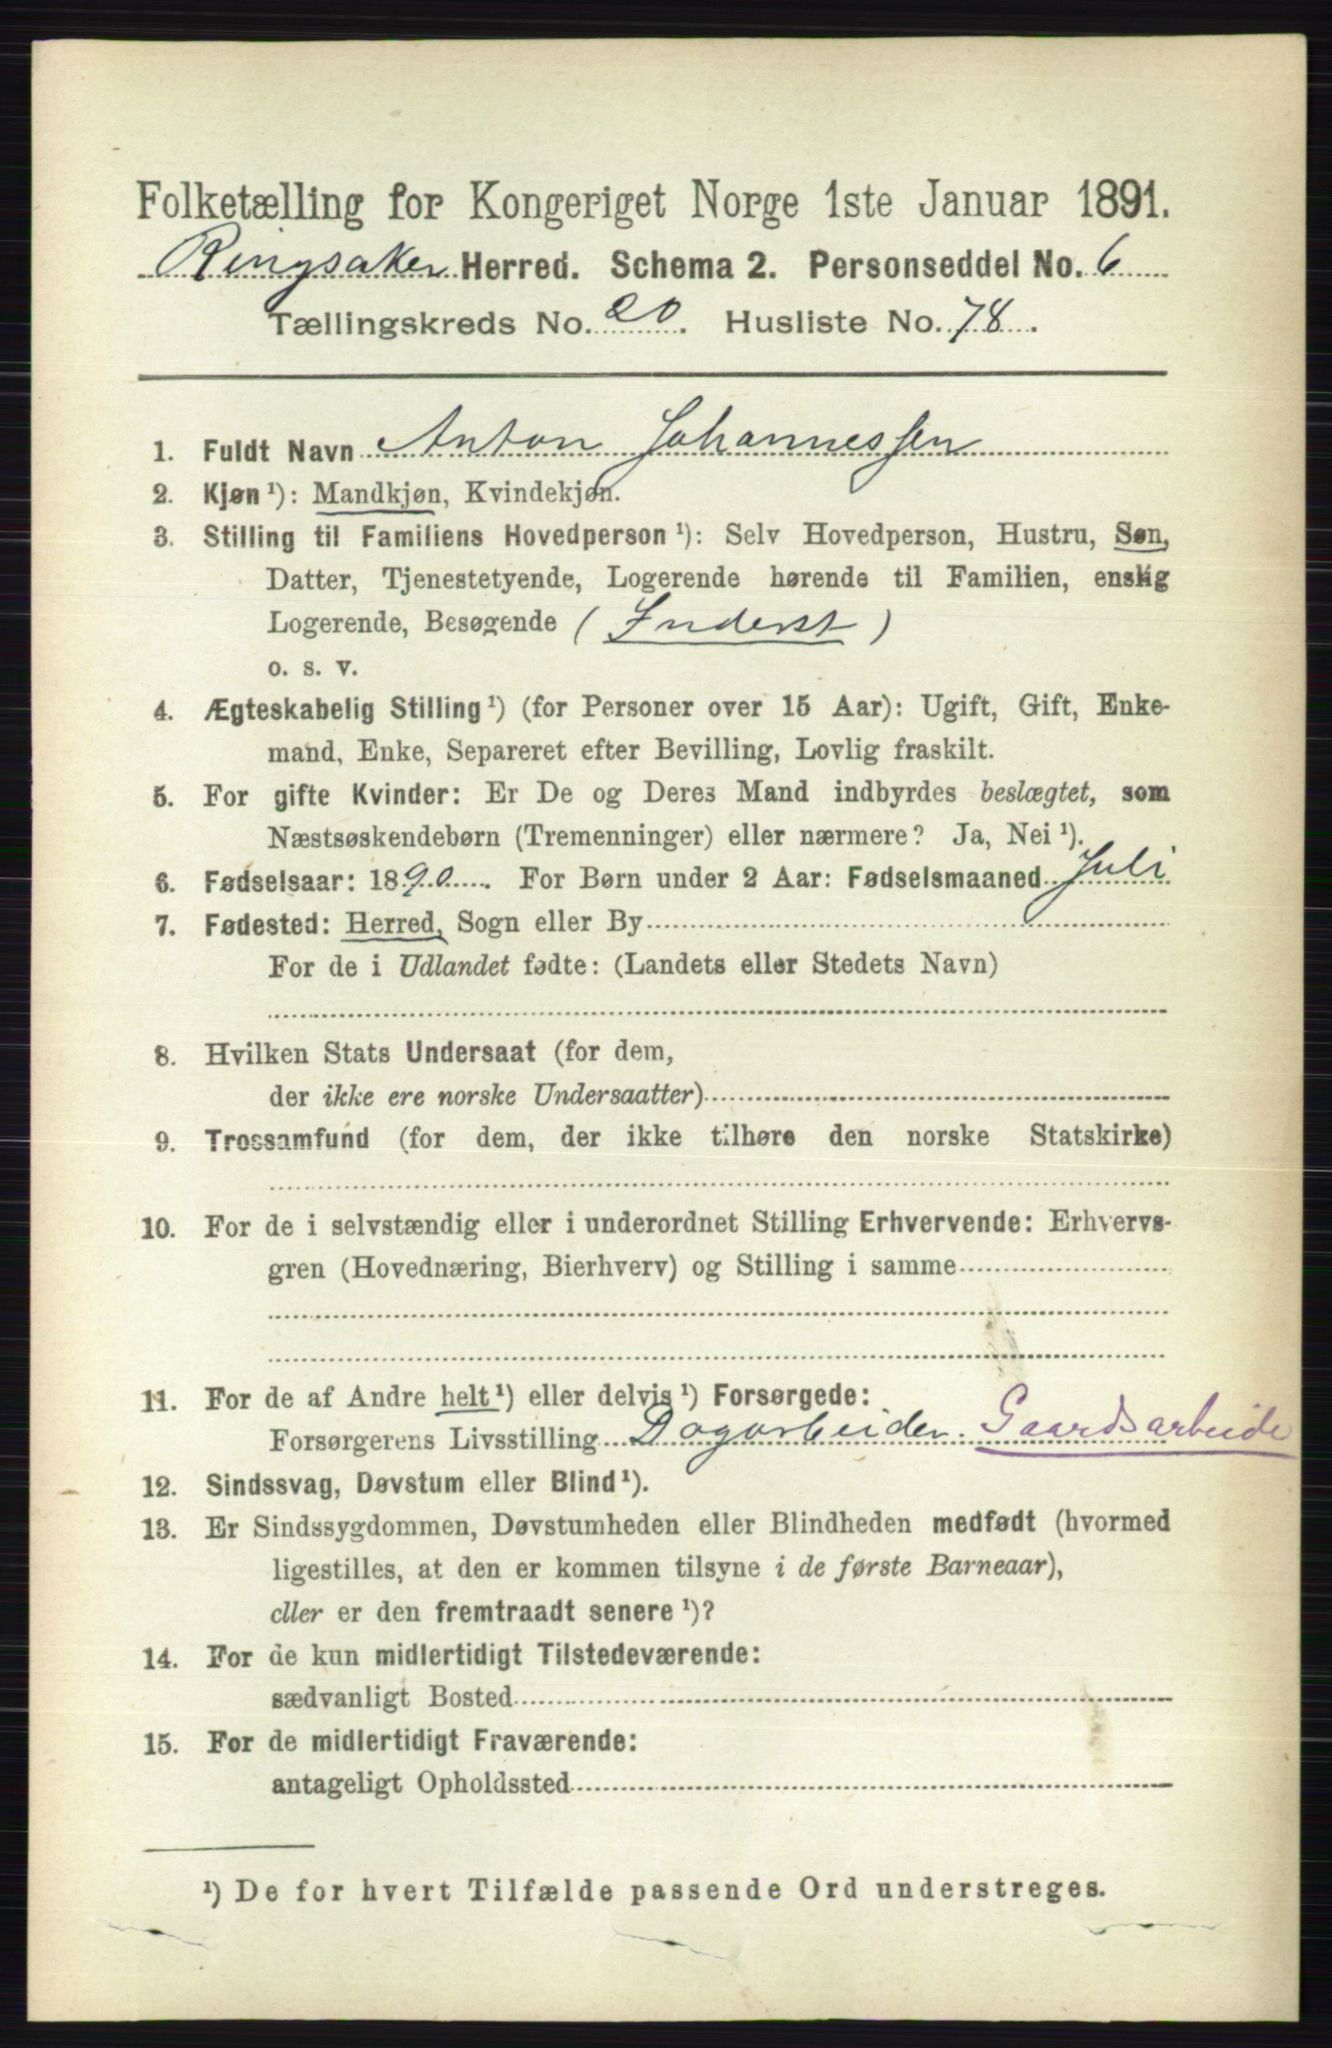 Folketælling for Kongeriget Norge 1ste Januar 1891.
Ringsaker Herred. Schema 2. Personseddel No. 6
Tællingskreds No. 20. Husliste No. 78.
1. Fuldt Navn Anton Johannessen
2. Kjøn ¹): Mandkjøn, Kvindekjøn.
3. Stilling til Familiens Hovedperson ¹): Selv Hovedperson, Hustru, Søn,
Datter, Tjenestetyende, Logerende hørende til Familien, enslig
Logerende, Besøgende (Inderst)
o. s. v.
4. Ægteskabelig Stilling ¹) (for Personer over 15 Aar): Ugift, Gift, Enke-
mand, Enke, Separeret efter Bevilling, Lovlig fraskilt.
5. For gifte Kvinder: Er De og Deres Mand indbyrdes beslægtet, som
Næstsøskendebørn (Tremenninger) eller nærmere? Ja, Nei ¹).
6. Fødselsaar: 1890. For Børn under 2 Aar: Fødselsmaaned Juli
7. Fødested: Herred, Sogn eller By
For de i Udlandet fødte: (Landets eller Stedets Navn)
8. Hvilken Stats Undersaat (for dem,
der ikke ere norske Undersaatter)
9. Trossamfund (for dem, der ikke tilhøre den norske Statskirke)
10. For de i selvstændig eller i underordnet Stilling Erhvervende: Erhvervs-
gren (Hovednæring, Bierhverv) og Stilling i samme
11. For de af Andre helt ¹) eller delvis ¹) Forsørgede:
Forsørgerens Livsstilling Dagarbeider. Gaardsarbeide
12. Sindssvag, Døvstum eller Blind ¹).
13. Er Sindssygdommen, Døvstumheden eller Blindheden medfødt (hvormed
ligestilles, at den er kommen tilsyne i de første Barneaar),
eller er den fremtraadt senere ¹)?
14. For de kun midlertidigt Tilstedeværende:
sædvanligt Bosted
15. For de midlertidigt Fraværende:
antageligt Opholdssted
¹) De for hvert Tilfælde passende Ord understreges.